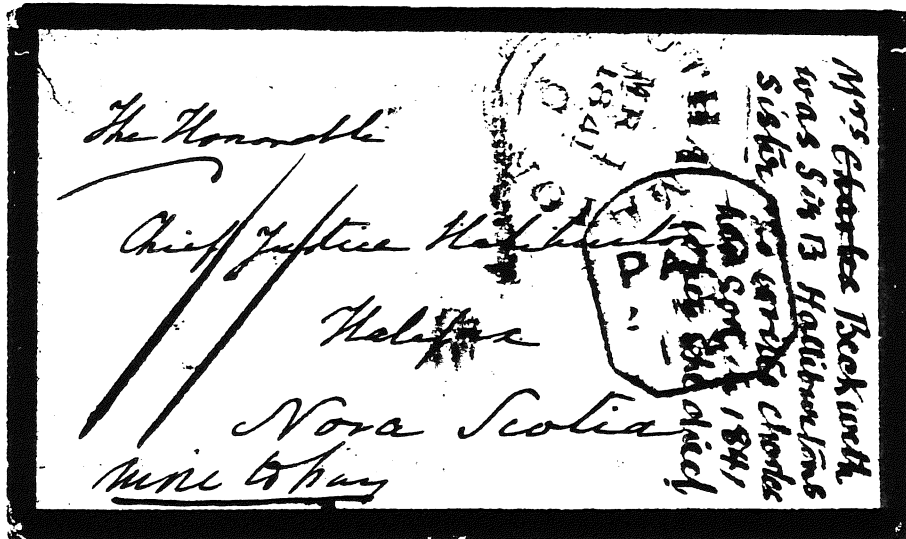 The Honorable
Chief Justice Haliburton
Halifax
Nova Scotia
nine to pay
1841
Mrs Charles Beckwith
was Sir B Halliburtons
Sister who wrote Charles
her Son 1841
when she died